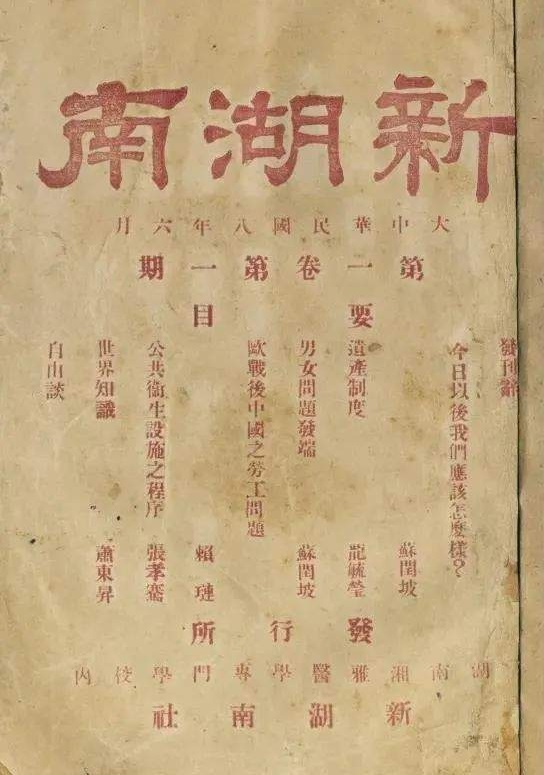 新湖南
大中華民國八年六月
第一卷第一期
要目
發刊辭
今日以後我們應該怎麼樣？ 蘇閏坡
遺產制度 龍毓瑩
男女問題發端 蘇閏坡
歐戰後中國之勞工問題 賴璉
公共衞生設施之程序 張孝騫
世界知識 蕭東昇
自由談
發行所
湖南湘雅醫學專門學校內
新湖南社